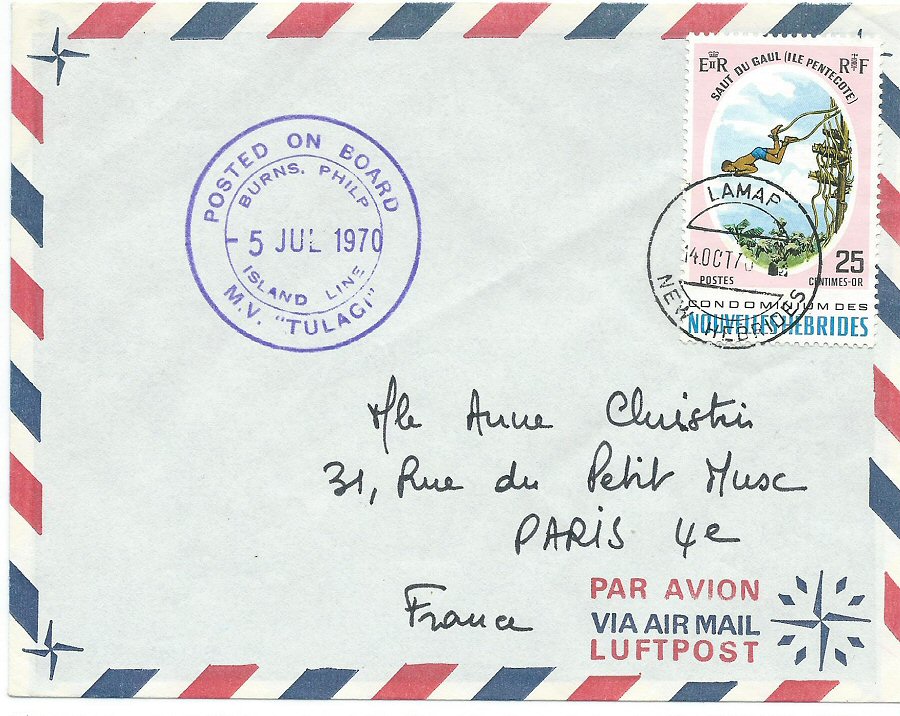 POSTED ON BOARD
BURNS. PHILP
5 JUL 1970
ISLAND LINE
M.V. "TULAGI"
EIIR RF
SAUT DU GAUL (ILE PENTECOTE)
25
POSTES CENTIMES-OR
CONDOMINIUM DES
NOUVELLES HEBRIDES
LAMAP
14.OCT70
NEW HEBRIDES
Mlle Anne Christin
31, Rue du Petit Musc
PARIS 4e
France
PAR AVION
VIA AIR MAIL
LUFTPOST